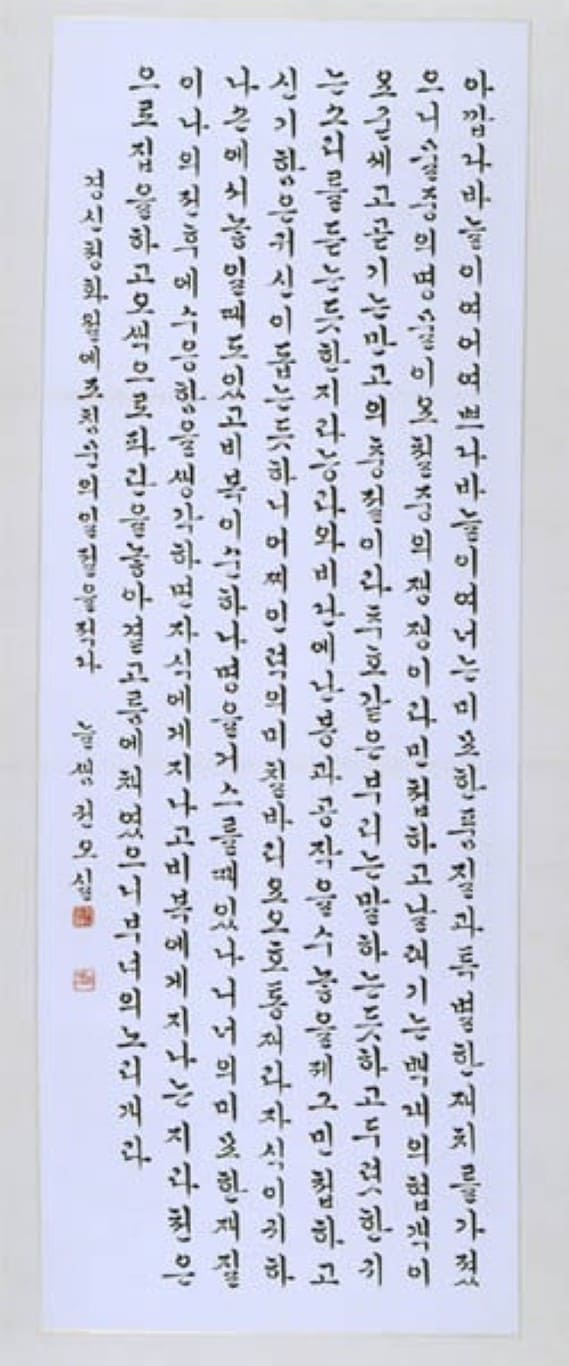 아깝다바늘이여어여쁘다바늘이여너는미묘한품질과특별한재치를가졌
으니물중의명물이요철중의쟁쟁이라민첩하고날래기는백대의협객이
요굳세고곧기는만고의충절이라추호같은부리는말하는듯하고두렷한귀
는소리를듣는듯한지라능라와비단에난봉과공작을수놓을제그민첩하고
신기함은귀신이돕는듯하니어찌인력의미칠바리오오호통재라자식이귀하
나손에서놓일때도있고비복이순하나명을거스를때있나니너의미묘한재질
이나의전후에수응함을생각하면자식에게지나고비복에게지나는지라천은
으로집을하고오색으로파란을놓아곁고름에채였으니부녀의노리개라
조침문의일절을적다 늘샘권오실